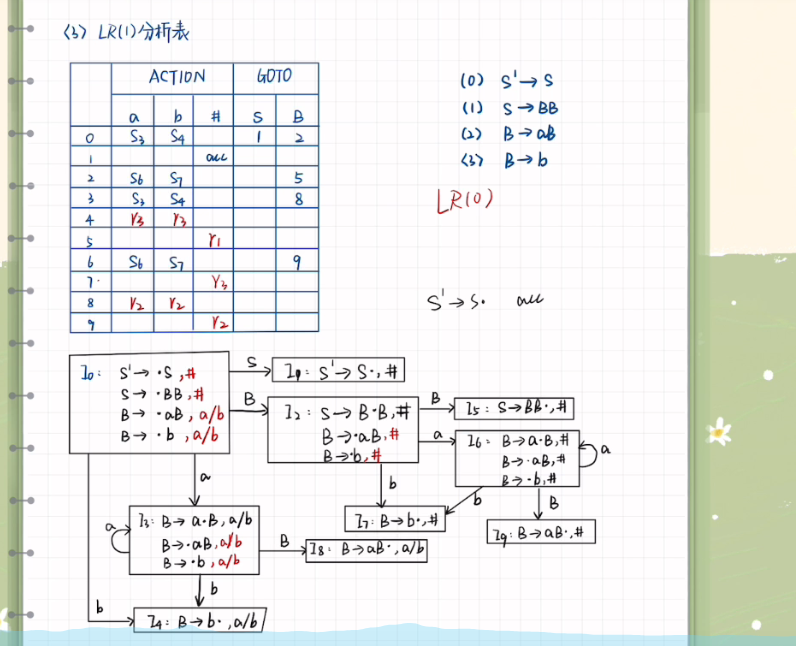 (3) LR(1)分析表
ACTION GOTO
a b # S B
0 S3 S4 1 2
1 acc
2 S6 S7 5
3 S3 S4 8
4 r3 r3
5 r1
6 S6 S7 9
7 r3
8 r2 r2
9 r2
(0) S'→S
(1) S→BB
(2) B→aB
(3) B→b
LR(0)
S'→S· acc
I0: S'→·S,#
S→·BB,#
B→·aB, a/b
B→·b, a/b
S
I1: S'→S·,#
B
I2: S→B·B,#
B→·aB,#
B→·b,#
B
I5: S→BB·,#
a
I6: B→a·B,#
B→·aB,#
B→·b,#
a
b
b
B
I7: B→b·,#
I9: B→aB·,#
a
a
I3: B→a·B, a/b
B→·aB, a/b
B→·b, a/b
B
I8: B→aB·, a/b
b
b
I4: B→b·, a/b